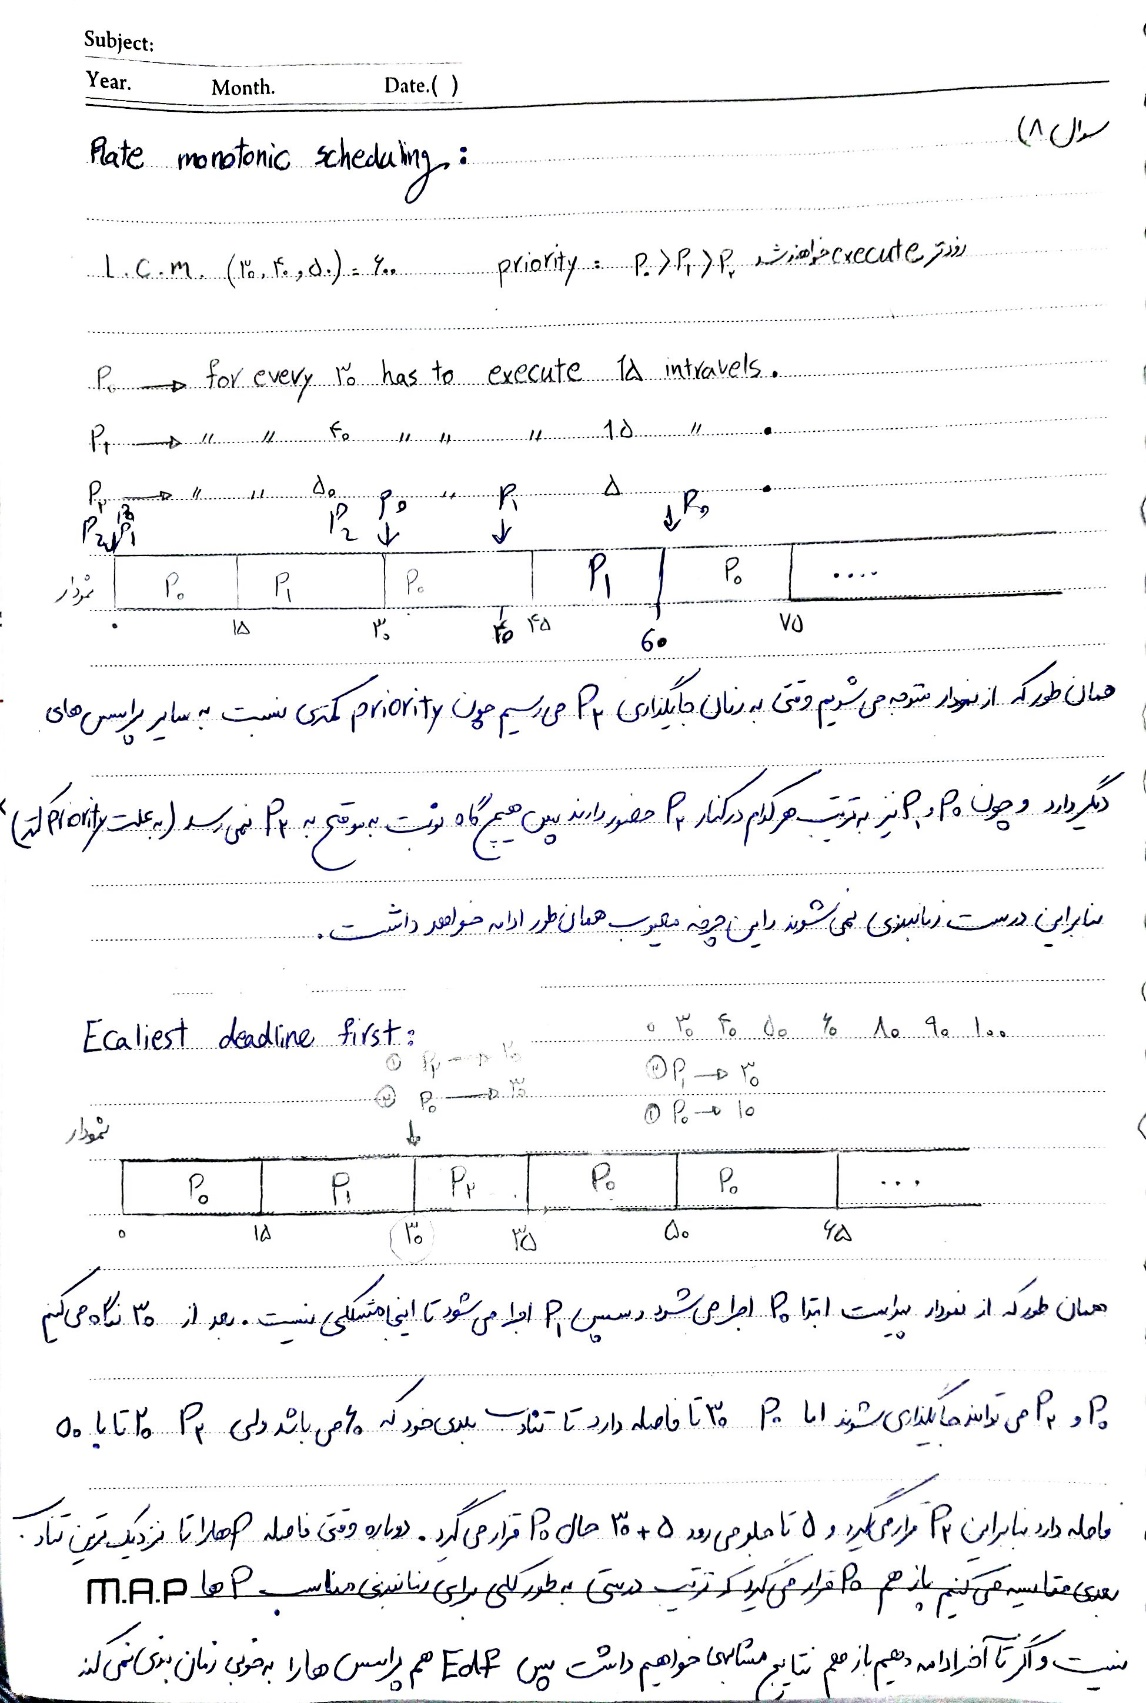 Subject:
Year. Month. Date.( )
سوال ۸)
Rate monotonic scheduling:
L.C.M. (۳۰, ۴۰, ۵۰) = ۶۰۰ priority: P₀ > P₁ > P₂ زودتر execute خواهند شد
P₀ → for every ۳۰ has to execute ۱۵ intravels.
P₁ → " " ۴۰ " " " ۱۵ " .
P₂ → " " ۵۰ " ۵ .
P₂ P₁ P₂ P₀ P₁ P₀
نمودار P₀ P₁ P₀ P₁ P₀ ....
۰ ۱۵ ۳۰ ۴۰ ۴۵ 60 ۷۵
همان طور که از نمودار متوجه می شویم وقتی به زمان جایگذاری P₂ می رسیم چون priority کمتری نسبت به سایر پراسس های
دیگر دارد و چون P₀ و P₁ نیز به ترتیب هر کدام در کنار P₂ حضور دارند پس هیچ گاه نوبت به موقع به P₂ نمی رسد (به علت priority کمتر)
بنابراین درست زمانبندی نمی شوند و این چرخه معیوب همان طور ادامه خواهد داشت.
Ecaliest deadline first: ۰ ۳۰ ۴۰ ۵۰ ۶۰ ۸۰ ۹۰ ۱۰۰
① P₂ → ۲۰ ② P₁ → ۳۰
② P₀ → ۳۰ ① P₀ → ۱۰
نمودار P₀ P₁ P₂ P₀ P₀ ...
۰ ۱۵ ۳۰ ۳۵ ۵۰ ۶۵
همان طور که از نمودار پیداست ابتدا P₀ اجرا می شود و سپس P₁ اجرا می شود تا اینجا مشکلی نیست. بعد از ۳۰ نگاه می کنیم
P₀ و P₂ می توانند جایگذاری شوند اما P₀ ۳۰ تا فاصله دارد تا تناوب بعدی خود که ۶۰ می باشد ولی P₂ ۲۰ تا با ۵۰
فاصله دارد بنابراین P₂ قرار می گیرد و ۵ تا جلو می رود ۵+۳۰ حال P₀ قرار می گیرد. دوباره وقتی فاصله Pها را تا نزدیک ترین تناوب
بعدی مقایسه می کنیم باز هم P₀ قرار می گیرد که ترتیب درستی به طور کلی برای زمانبندی مناسب Pها M.A.P
نیست و اگر تا آخر ادامه دهیم باز هم نتایج مشابهی خواهیم داشت پس EdF هم پراسس ها را به خوبی زمان بندی نمی کند